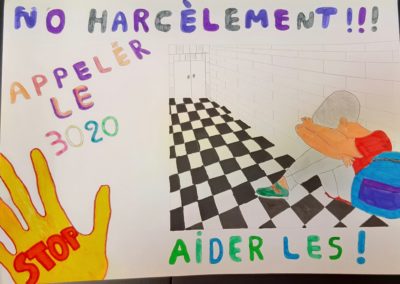 NO HARCÈLEMENT!!!
APPELÉR
LE
3020
STOP
AIDER LES!